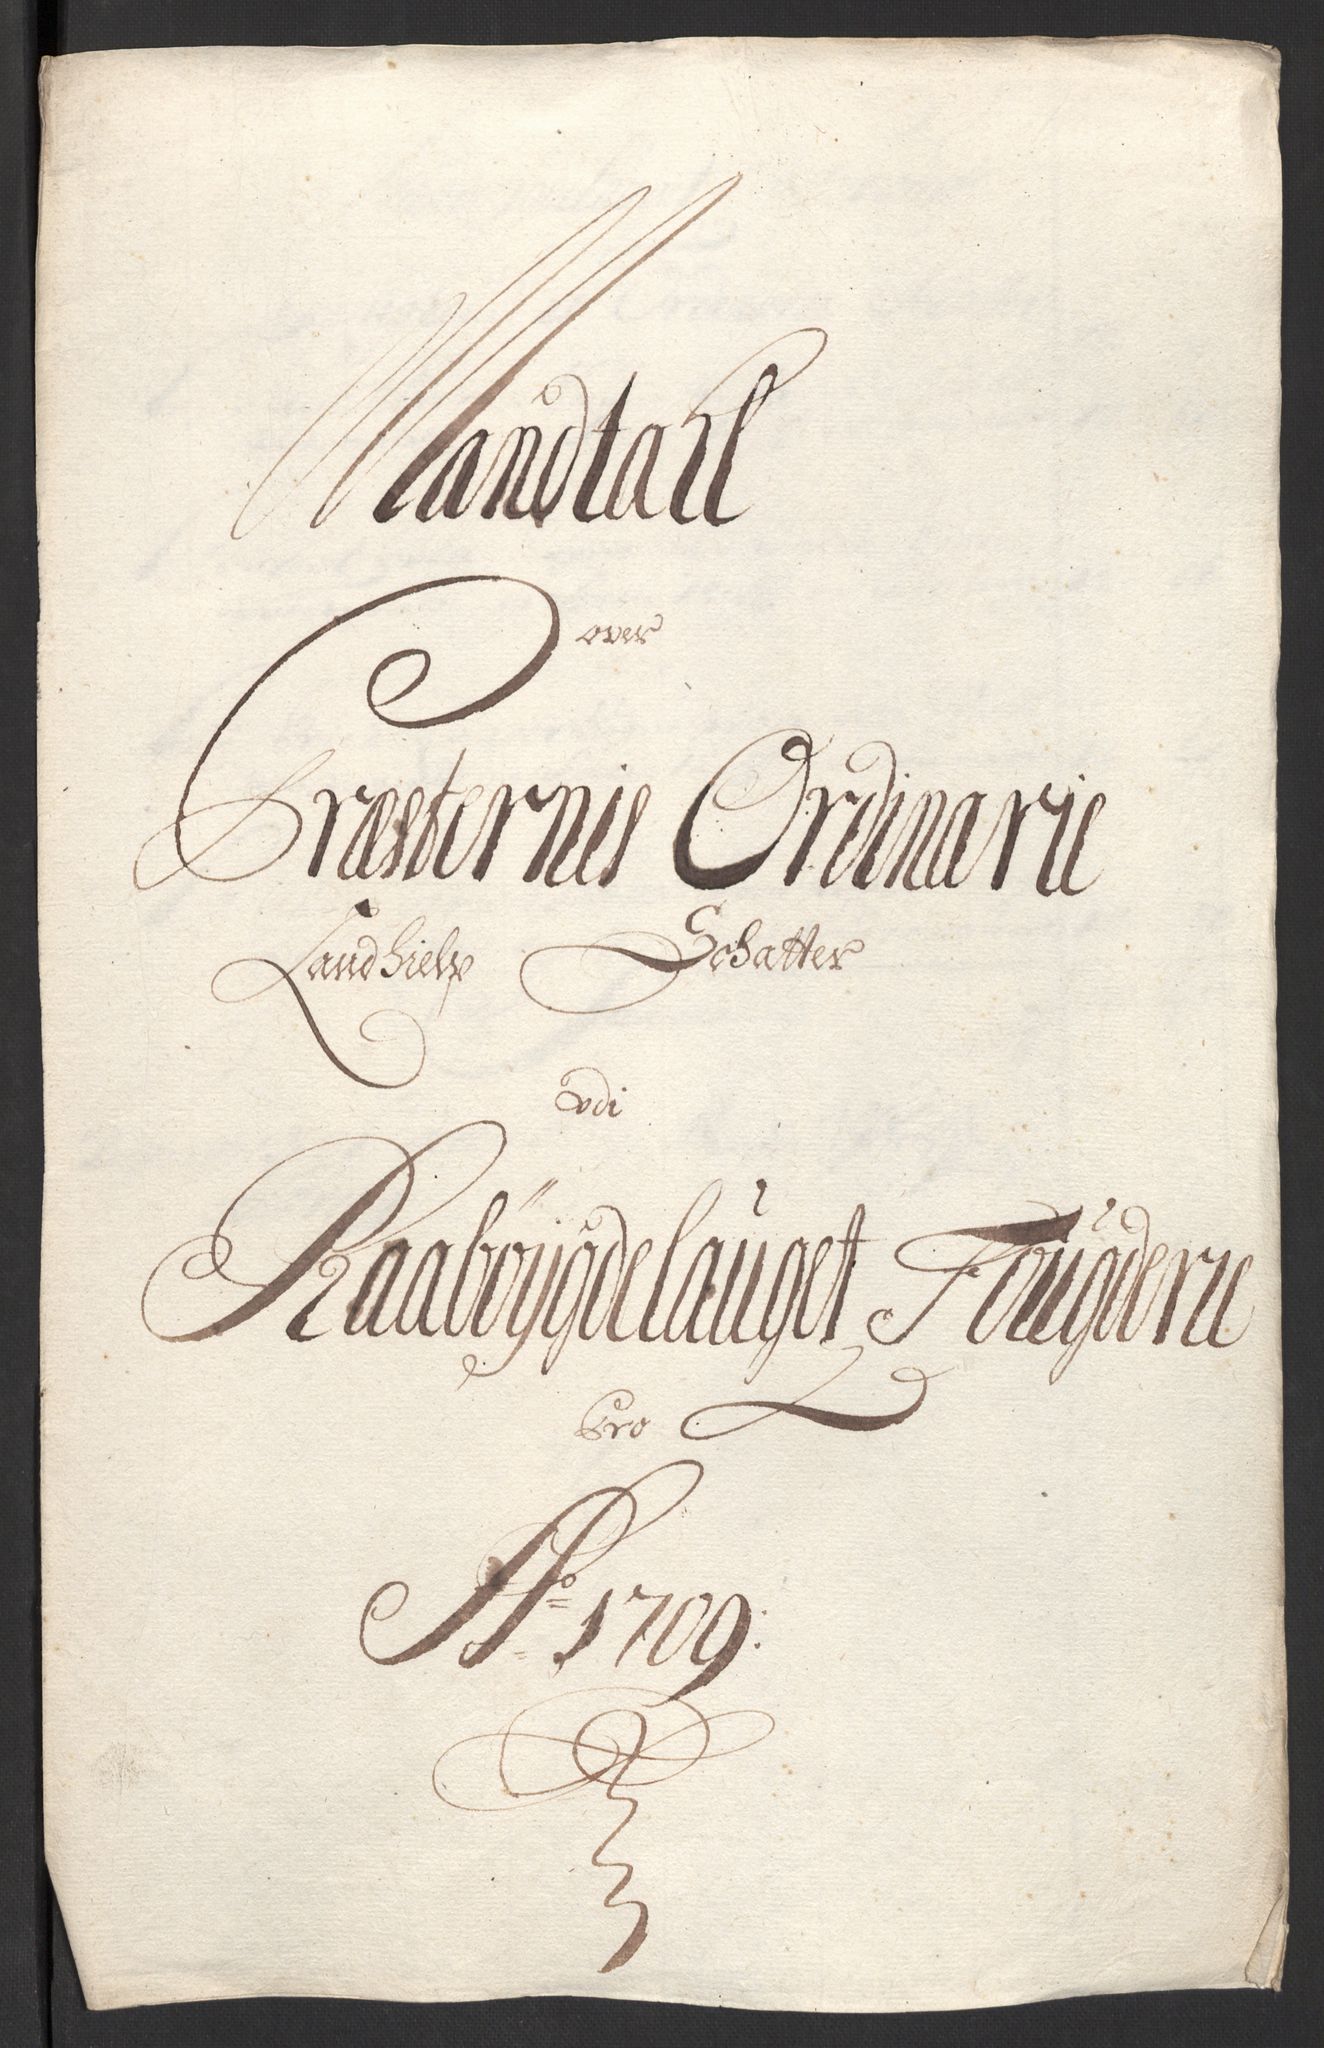 Mandtall
over
Præsternis Ordinarie
Landhielp Schatter
udi
Raaböÿgdelauget Fougderie
Pro
A:o 1709: